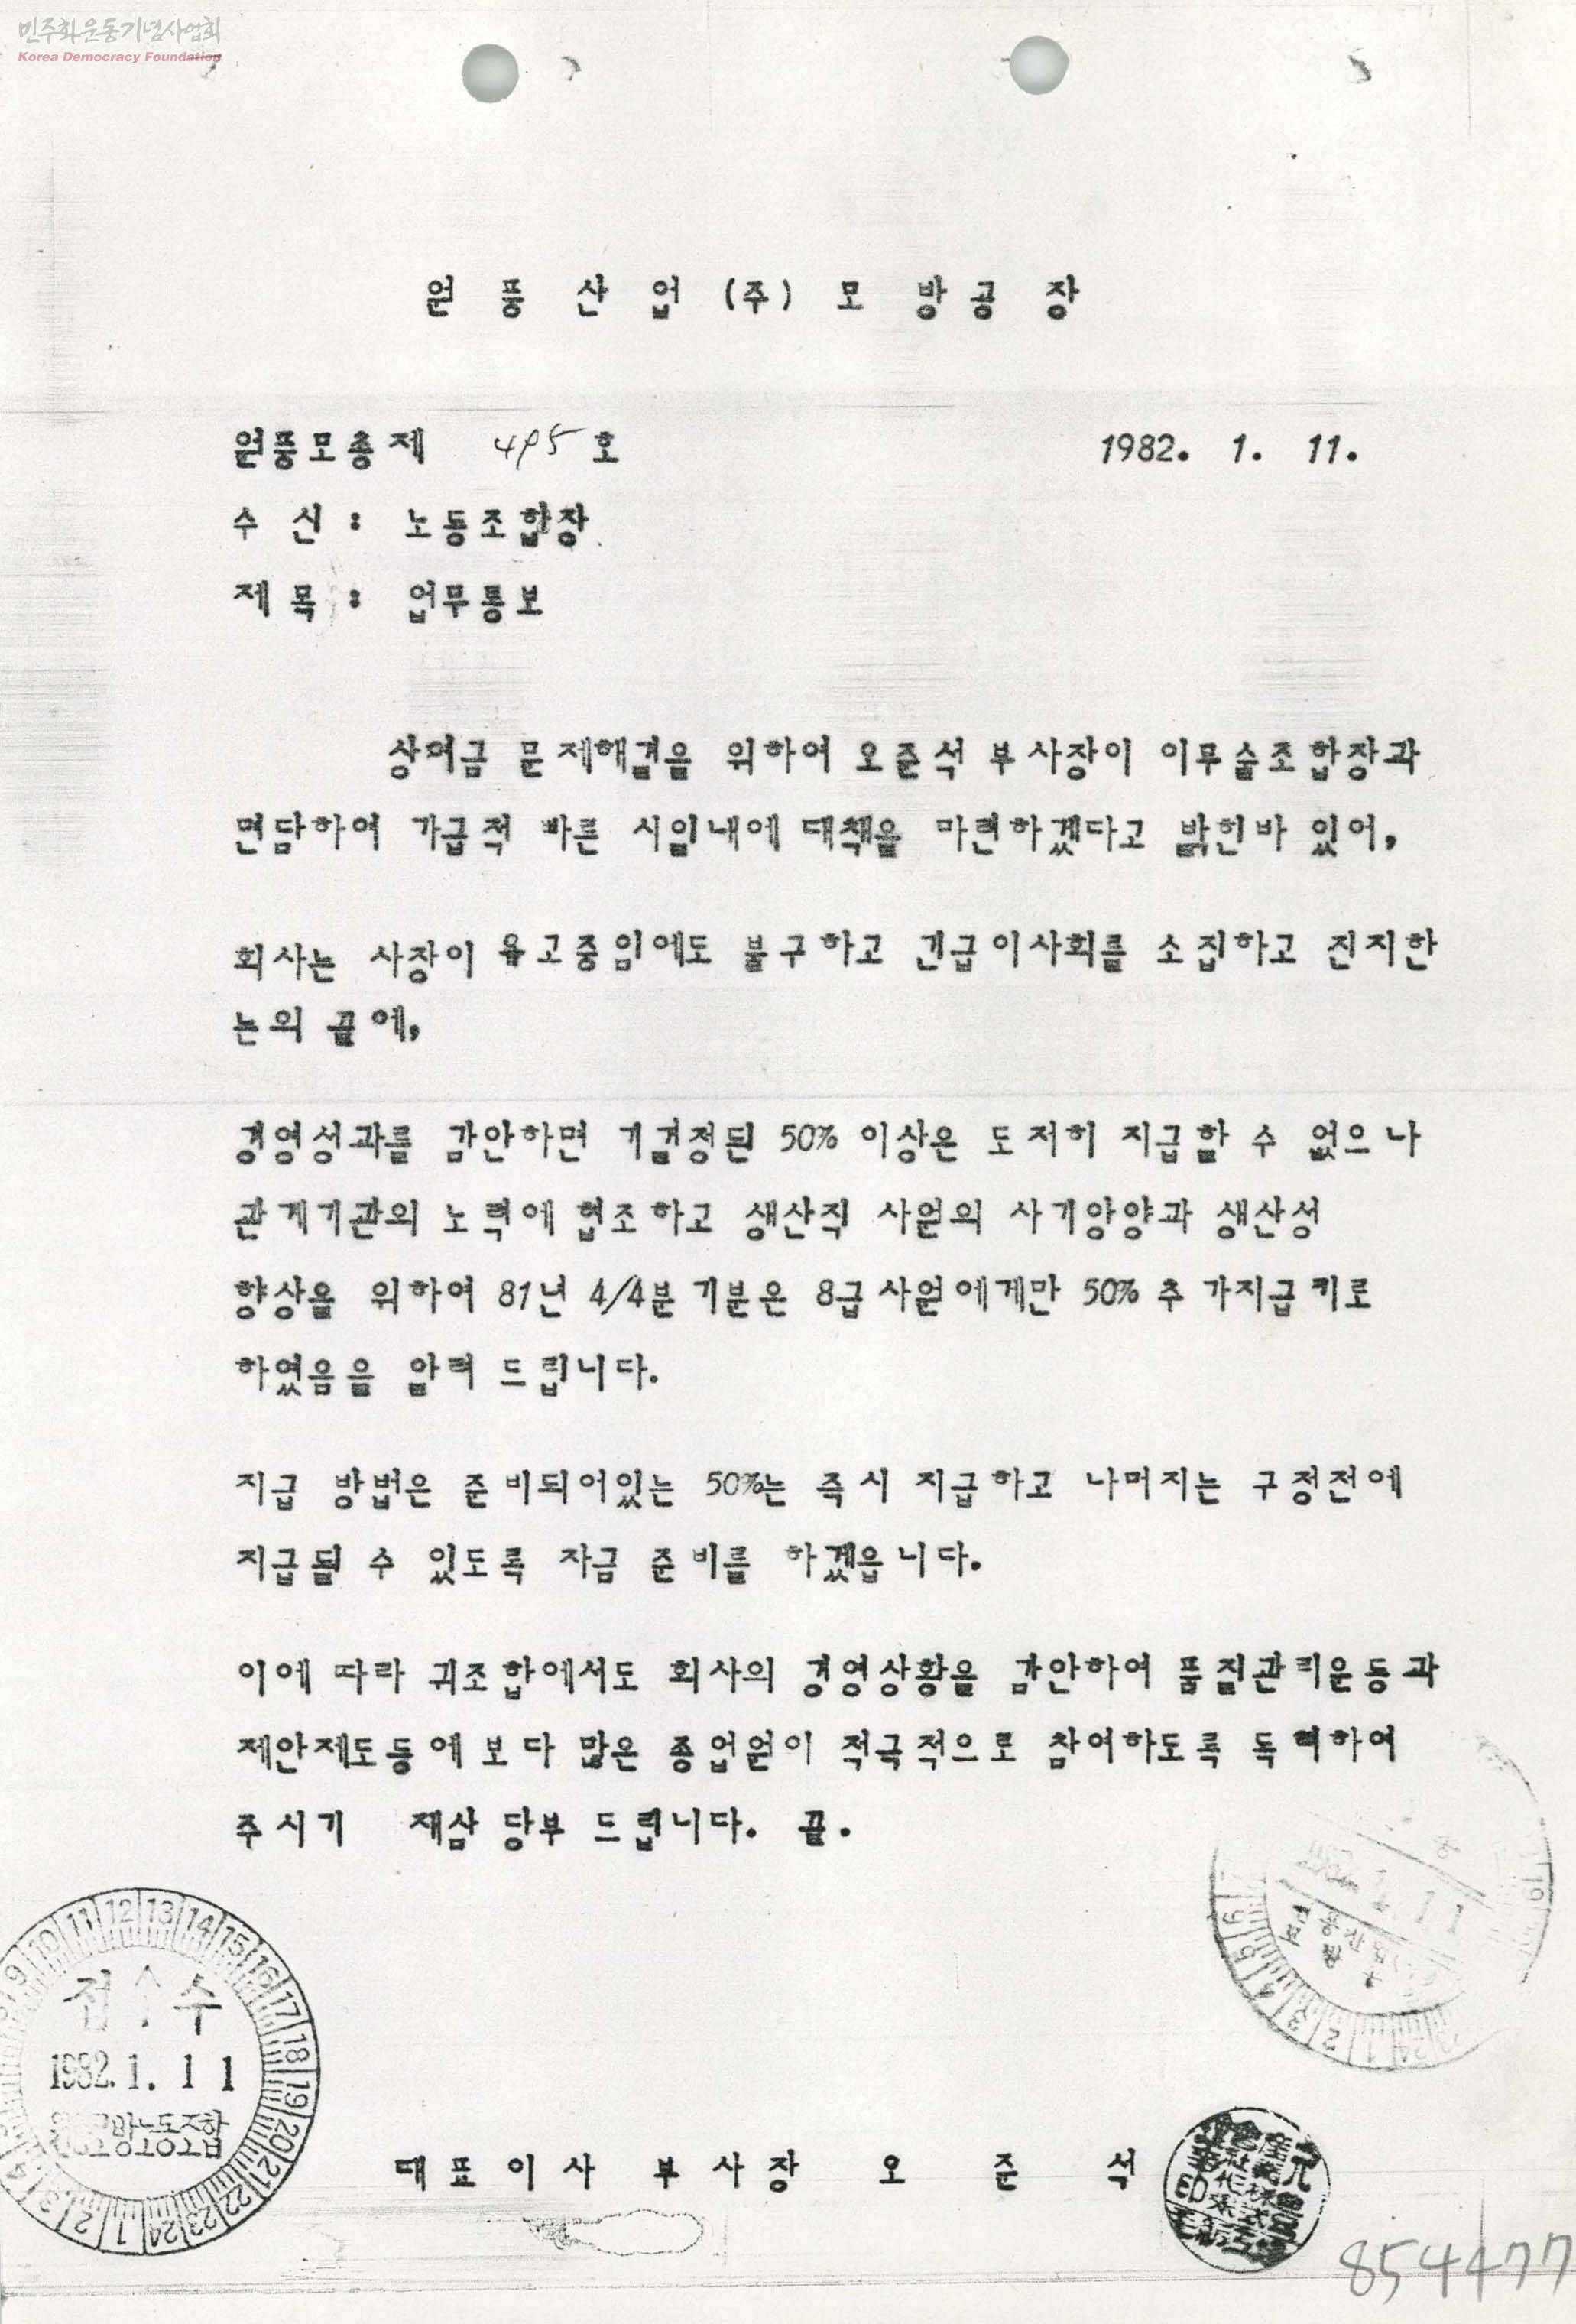 민주화운동기념사업회
Korea Democracy Foundation
원 풍 산 업 (주) 모 방 공 장
원풍모총제 495 호
1982. 1. 11.
수 신 : 노동조합장
제 목 : 업무통보
상여금 문제해결을 위하여 오준석 부사장이 이무술조합장과
면담하여 가급적 빠른 시일내에 대책을 마련하겠다고 밝힌바 있어,
회사는 사장이 유고중임에도 불구하고 긴급이사회를 소집하고 진지한
논의 끝에,
경영성과를 감안하면 기결정된 50% 이상은 도저히 지급할 수 없으나
관계기관의 노력에 협조하고 생산직 사원의 사기앙양과 생산성
향상을 위하여 81년 4/4분기분은 8급사원에게만 50% 추가지급키로
하였음을 알려 드립니다.
지급 방법은 준비되어있는 50%는 즉시 지급하고 나머지는 구정전에
지급될 수 있도록 자금 준비를 하겠읍니다.
이에 따라 귀조합에서도 회사의 경영상황을 감안하여 품질관리운동과
제안제도등에 보다 많은 종업원이 적극적으로 참여하도록 독려하여
주시기 재삼 당부 드립니다. 끝.
접 수
1982. 1. 11
대표이사 부사장 오 준 석
854477